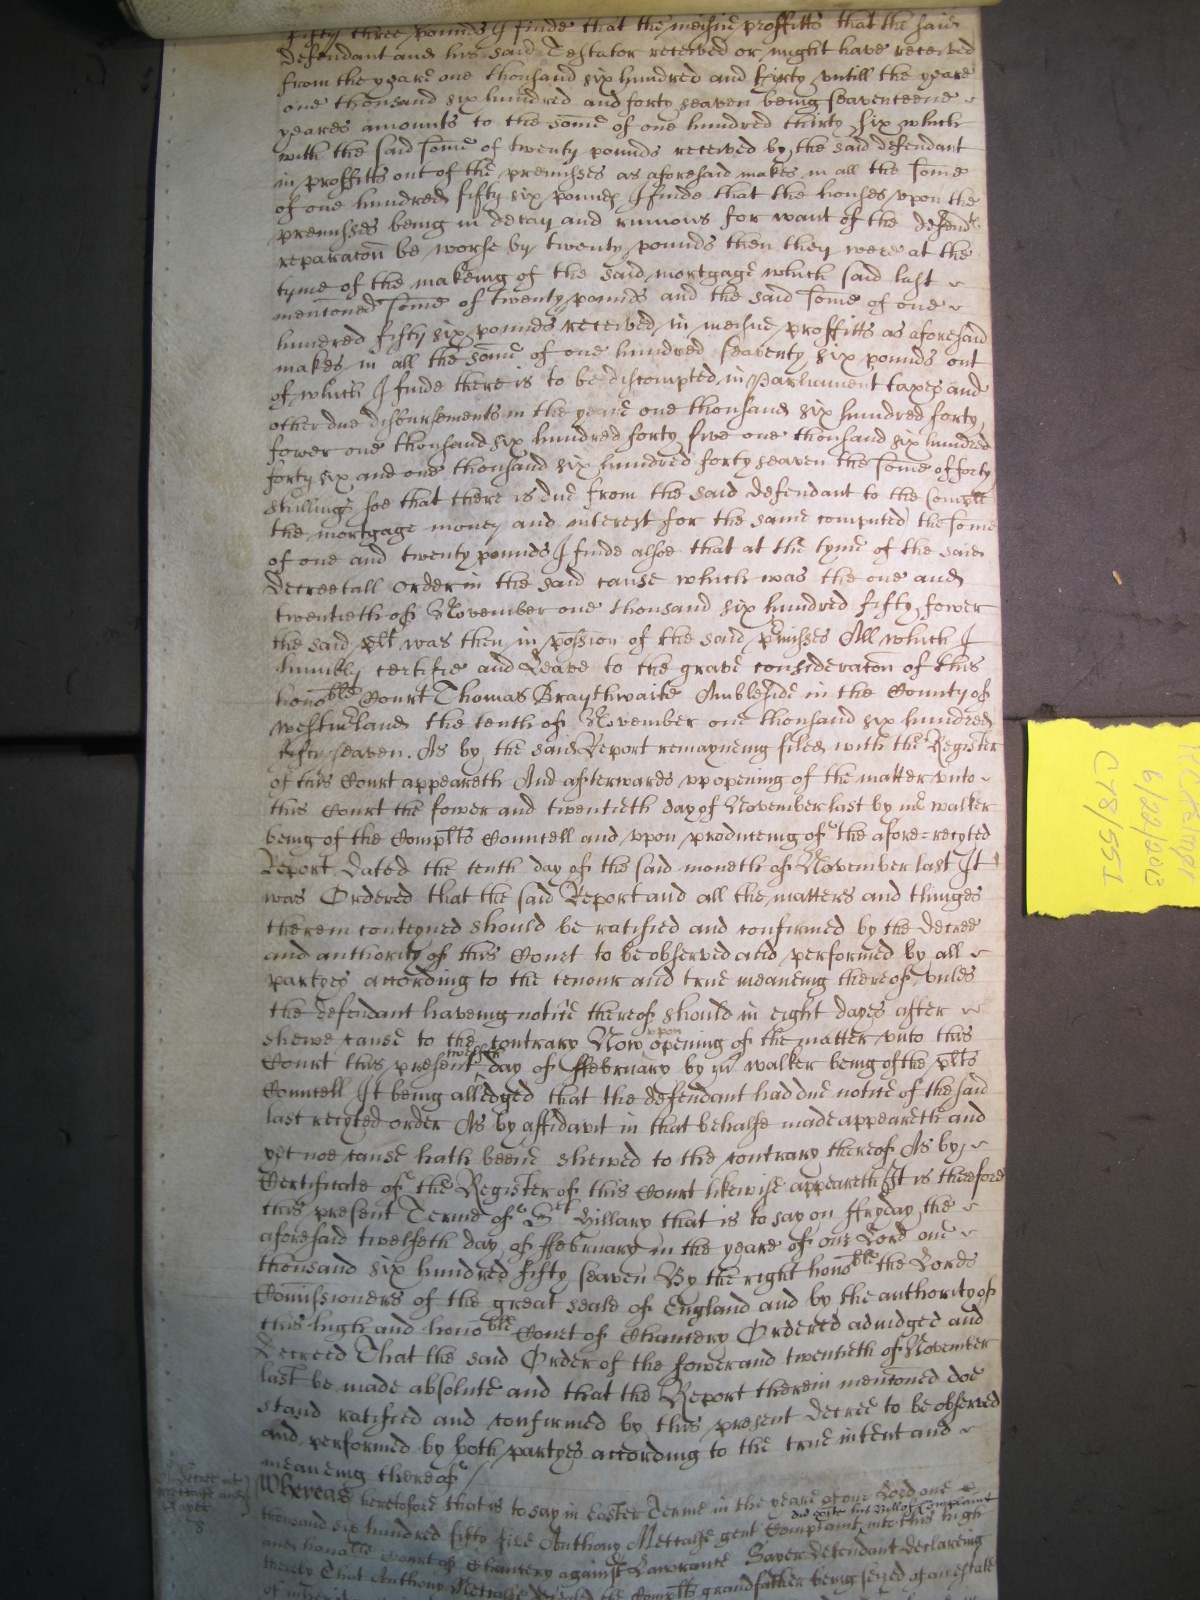 fifty three pounds I finde that the meisne proffitts that the said
defendant and his said Testator received or might have received
from the yeare one thousand six hundred and thirty untill the yeare
one thousand six hundred and forty seaven being seaventeene
yeares amounts to the some of one hundred thirty six which
with the said some of twenty pounds received by the said defendant
in proffitts out of the premisses as aforesaid makes in all the some
of one hundred fifty six pounds I finde that the houses upon the
premisses being in decay and ruinous for want of the defend.ts
reparacon be worse by twenty pounds then they were at the
tyme of the makeing of the said mortgage which said last
mentioned some of twenty pounds and the said some of one
hundred fifty six pounds received in meisne proffitts as aforesaid
makes in all the some of one hundred seaventy six pounds out
of which I finde there is to be discompted in Parliament taxes and
other due disbursements in the yeare one thousand six hundred forty
fower one thousand six hundred forty five one thousand six hundred
forty six and one thousand six hundred forty seaven the some of forty
shillings soe that there is due from the said defendant to the Complt
the mortgage money and interest for the same computed the some
of one and twenty pounds I finde alsoe that at the tyme of the said
decreetall order in the said cause which was the one and
twentieth of November one thousand six hundred fifty fower
the said plt was then in possion of the said pmisses All which I
humbly certifie and leave to the grave consideracon of this
honoble Court Thomas Braythwaite Ambleside in the County of
Westmerland the tenth of November one thousand six hundred
fifty seaven. As by the said Report remayneing filed with the Register
of this Court appeareth And afterwards upp opening of the matter unto
this Court the fower and twentieth day of November last by mr walker
being of the Complts Councell and upon produceing of the afore=recyted
Report Dated the tenth day of the said moneth of November last It
was Ordered that the said Report and all the matters and thinges
therein conteyned should be ratified and confirmed by the decree
and authority of this Court to be observed and performed by all
partyes according to the tenour and true meaneing thereof unles
the defendant haveing notice thereof should in eight dayes after
shewe cause to the contrary Now upon opening of the matter unto this
Court this present twelfth day of ffebruary by mr walker being of the plts
Councell It being alledged that the defendant had due notice of the said
last recyted order As by affidavit in that behalfe made appeareth and
yet noe cause hath beene shewed to the contrary thereof As by
Certificate of the Register of this Court likewise appeareth It is therefore
this present Terme of St Hillary that is to say on ffryday the
aforesaid twelfeth day of ffebruary in the yeare of our Lord one
thousand six hundred fifty seaven By the right honoble the Lords
Comissioners of the great seale of England and by the authority of
this high and honoble Court of Chancery Ordered adiudged and
Decreed That the said Order of the fower and twentieth of November
last be made absolute and that the Report therein mentioned doe
stand ratified and confirmed by this present decree to be observed
and performed by both partyes according to the true intent and
meaneing thereof /
Whereas heretofore that is to say in Easter Terme in the yeare of our Lord one
thousand six hundred fifty five Anthony Metcalfe gent Complainant did exhibit his Bill of Complaint into this high
and honoble Court of Chancery against Lawrance Sayer defendant declareing
thereby That Anthony Metcalfe the Complts grandfather being seized of an estate
of
6/22/2012
C78/551